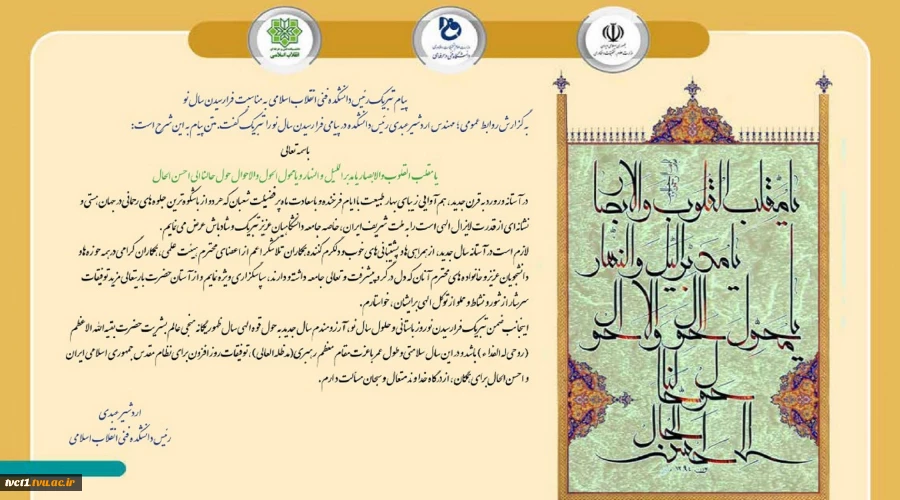 انقلاب اسلامی
جمهوری اسلامی ایران
وزارت علوم، تحقیقات و فناوری
پیام تبریک رئیس دانشکده فنی انقلاب اسلامی به مناسبت فرارسیدن سال نو
به گزارش روابط عمومی؛ مهندس اردشیر عبدی رئیس دانشکده در پیامی فرارسیدن سال نو را تبریک گفت. متن پیام به این شرح است:
باسمه تعالی
یا مقلب القلوب والابصار یا مدبر اللیل و النهار و یا محول الحول والاحوال حول حالنا الی احسن الحال
در آستانه ورود به قرن جدید، هم آوایی زیبای بهار طبیعت با ایام فرخنده و با سعادت ماه پرفضیلت شعبان که هر دو از باشکوه ترین جلوه های رحمانی در جهان هستی و
نشانه ای از قدرت لایزال الهی است را به ملت شریف ایران، خاصه جامعه دانشگاهیان عزیز تبریک و شادباش عرض می نمایم.
لازم است در آستانه سال جدید، از همراهی ها و پشتیبانی های خوب و دلگرم کننده همکاران تلاشگر اعم از اعضای محترم هیئت علمی، همکاران گرامی در همه حوزه ها و
دانشجویان عزیز و خانواده های محترم آنان که دل در گرو پیشرفت و تعالی جامعه داشته و دارند، سپاسگزاری ویژه نمایم و از آستان حضرت باریتعالی مزید توفیقات
سرشار از شور و نشاط و مملو از توکل الهی برایشان، خواستارم.
اینجانب ضمن تبریک فرارسیدن نوروز باستانی و حلول سال نو، آرزومندم سال جدید به حول قوه الهی سال ظهور یگانه منجی عالم بشریت حضرت بقیه الله الاعظم
(روحی له الفداء) باشد و در این سال سلامتی و طول عمر با عزت مقام معظم رهبری (مدظله العالی)، توفیقات روز افزون برای نظام مقدس جمهوری اسلامی ایران
و احسن الحال برای همگان، از درگاه خداوند متعال و سبحان مسألت دارم.
اردشیر عبدی
رئیس دانشکده فنی انقلاب اسلامی
یا مقلب القلوب والابصار
یا مدبر اللیل والنهار
یا محول الحول والاحوال
حول حالنا
الی احسن الحال
tvct1.tvu.ac.ir